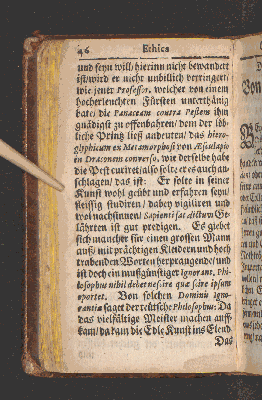 46 Ethica
und seyn will/ hierinn nicht bewandert
ist/ wird er nicht unbillich verringert/
wie jener Professor, welcher von einem
hocherleuchten Fürsten unterthänig
bate/ die Panaceam contra Pestem ihm
gnädigst zu offenbahren/ dem der löb-
liche Printz ließ andeuten/ das hiero-
glyphicum ex Metamorphosi von Æsculapio
in Draconem converso, wie derselbe habe
die Pest curiret/ also solte er es auch ab-
schlagen/ das ist: Er solte in seiner
Kunst wohl geübt und erfahren seyn/
fleissig studiren/ dabey vigiliren und
wol nachsinnen/ Sapienti sat dictum Ge-
lährten ist gut predigen. Es giebet
sich mancher für einen grossen Mann
auß/ mit prächtigen Kleidern und hoch
trabenden Worten herprangende/ und
ist doch ein mußgünstiger Ignorant. Phi-
losophus nihil debet nescire quæ scire ipsum
oportet. Von solchen Dominis Igno-
rantiæ saget der teutsche Philosophus: Da
das vielfältige Meister machen auff-
kam/ da kam die Edle Kunst ins Elend
Das